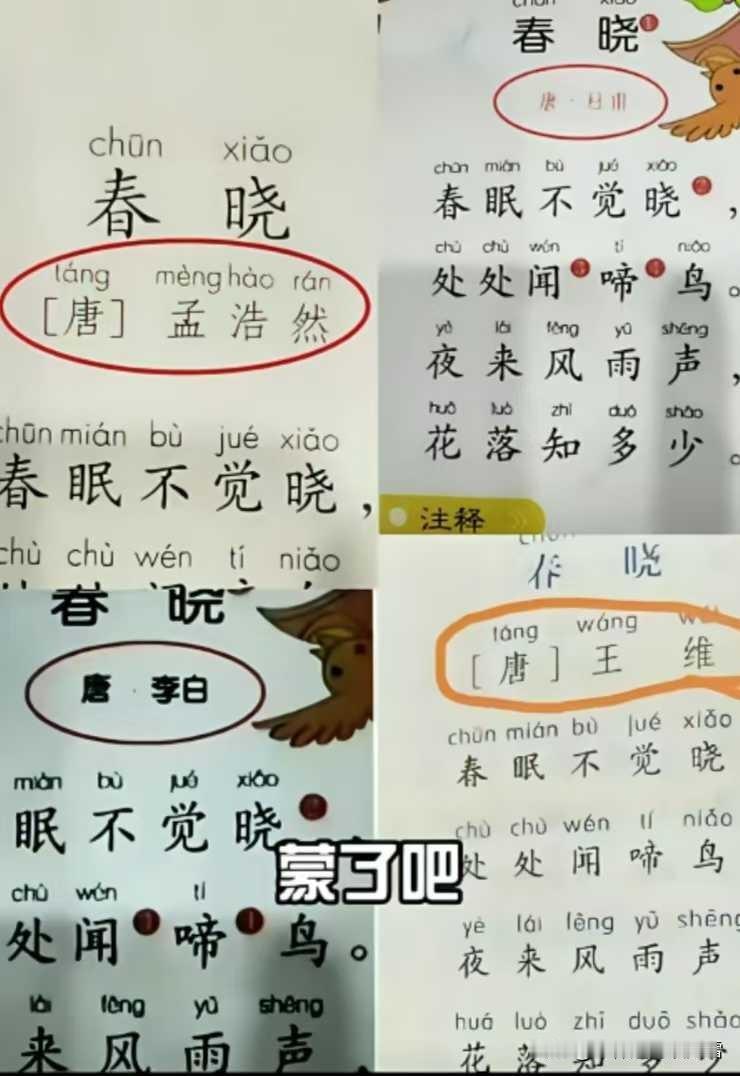 chūn xiǎo
春 晓
táng mèng hào rán
[唐] 孟 浩 然
chūn mián bù jué xiǎo
春 眠 不 觉 晓，
chù chù wén tí niǎo
春 晓❶
唐·
chūn mián bù jué xiǎo
春 眠 不 觉 晓，
chù chù wén tí niǎo
处 处 闻❸ 啼 鸟。
yè lái fēng yǔ shēng
夜 来 风 雨 声，
huā luò zhī duō shǎo
花 落 知 多 少。
注释
春 晓
唐·李白
mián bù jué xiǎo
眠 不 觉 晓
chù wén tí
处 闻 啼 鸟。
lái fēng yǔ shēng
来 风 雨 声，
蒙了吧
晓
táng wáng
[唐] 王 维
chūn mián bù jué xiǎo
春 眠 不 觉 晓
chù chù wén tí niǎo
处 处 闻 啼 鸟
yè lái fēng yǔ shēng
夜 来 风 雨 声
huā luò zhī duō shǎo
花 落 知 多 少